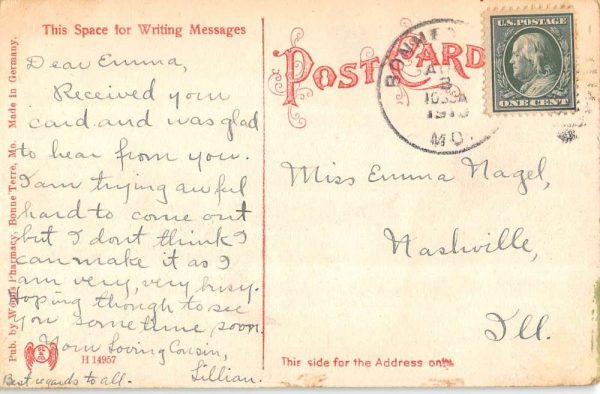 This Space for Writing Messages
Dear Emma,
Received your
card and was glad
to hear from you.
I am trying awful
hard to come out
but I dont think I
can make it as I
am very, very busy.
Hoping though to see
you sometime soon.
Your Loving Cousin,
Lillian.
Best regards to all.
H 14957
Pub. by Woods Pharmacy, Bonne Terre, Mo. Made in Germany.
POST CARD
BONNE
MO.
U.S. POSTAGE
ONE CENT
Miss Emma Nagel,
Nashville,
Ill.
This side for the Address only